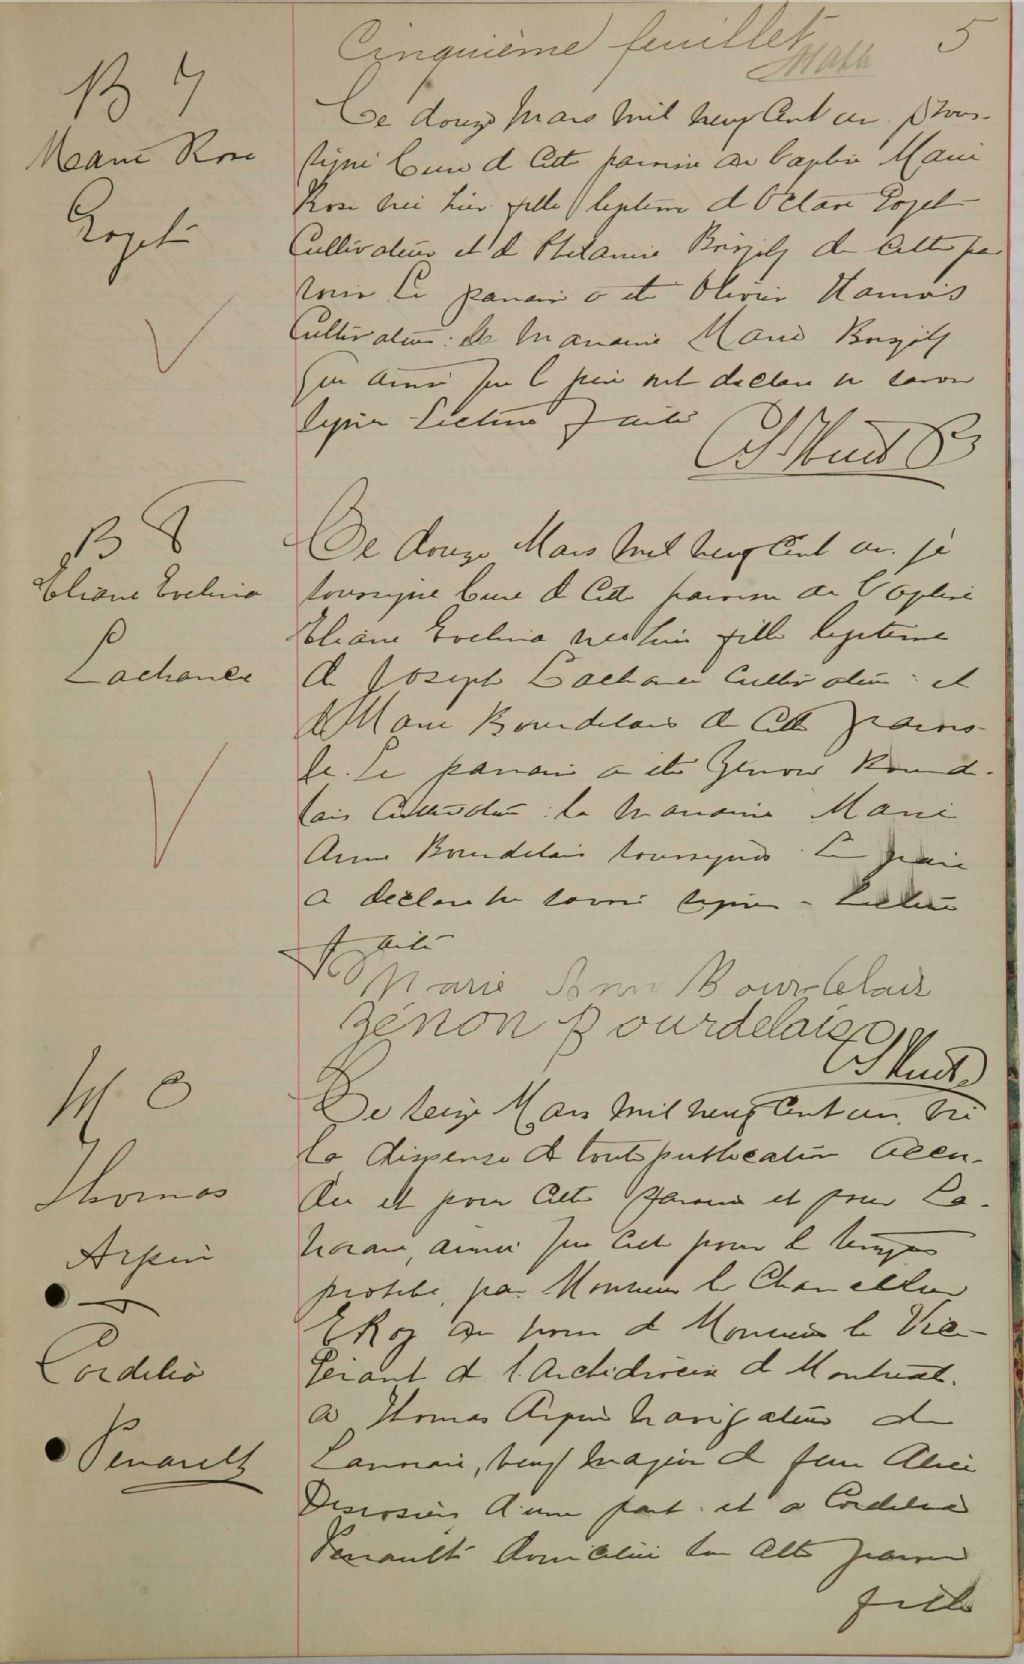 Cinquième feuillet 5
B 7
Marie Rose
Goget
Ce douze Mars mil neuf cent un je sous-
signé Curé de cette paroisse ai baptisé Marie
Rose née hier fille légitime d Octave Goget
Cultivateur et de de cette pa
roisse Le parrain a été Olivier
Cultivateur : la marraine Marie
qui ainsi que le père ont déclaré ne savoir
signer Lecture faite
B 8
Eliane Evelina
Lachance
Ce douze Mars mil neuf cent un je
soussigné Curé de cette paroisse ai baptisé
Eliane Evelina née hier fille légitime
de Joseph Lachance Cultivateur et
de Marie Bourdelais de cette parois-
se. Le parrain a été Zénon Bourde-
lais Cultivateur : la marraine Marie
Anne Bourdelais soussignés Le père
a déclaré ne savoir signer - Lecture
faite
Marie Ann Bourdelais
Zénon Bourdelais
M
Thomas
Arpin
&
Cordelia
Penault
Ce seize Mars mil neuf cent un, vu
la dispense de toute publication accor-
dée et pour cette paroisse et pour La-
noraie, ainsi que celle pour le temps
prohibé, par Monsieur le Chancelier
E Roy au nom de Monsieur le Vice-
Gérant de l'Archidiocèse de Montréal.
a Thomas Arpin navigateur de
Lanoraie, veuf majeur de feue Alice
Desrosiers d'une part et a Cordelia
Penault domiciliée en cette paroisse
fille